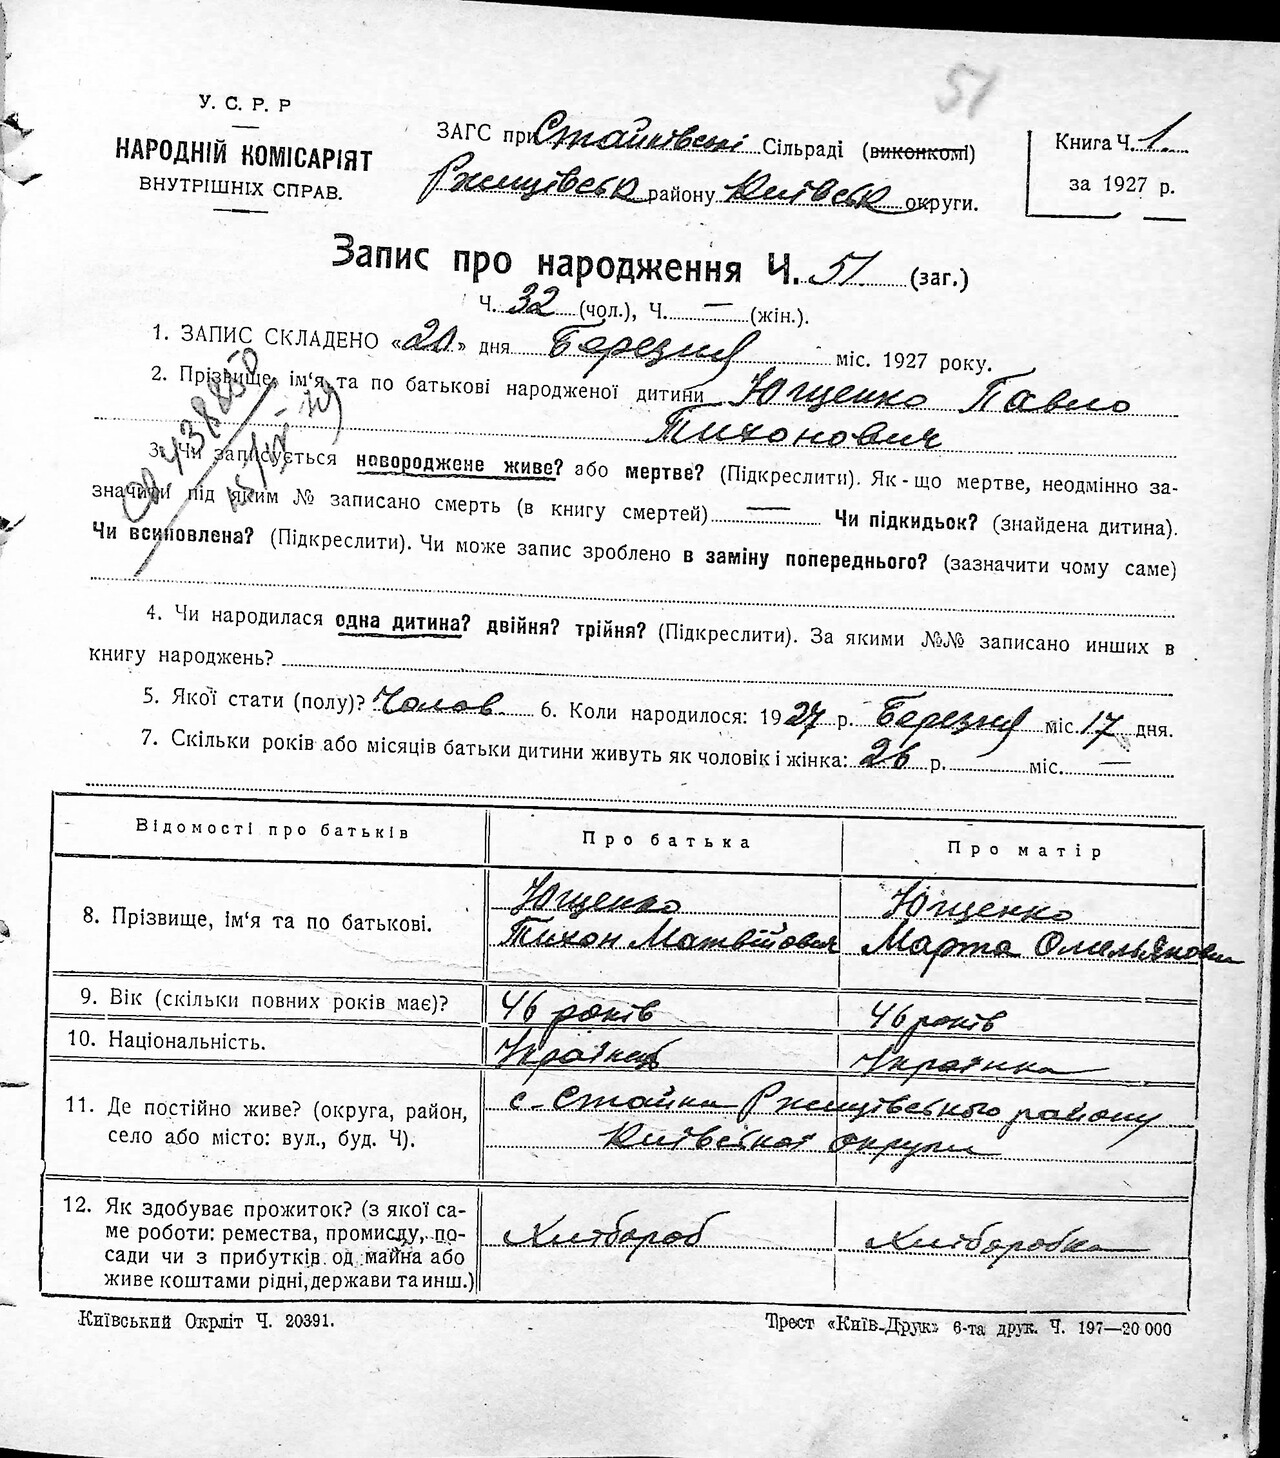 51
У. С. Р. Р
НАРОДНІЙ КОМІСАРІЯТ
ВНУТРІШНІХ СПРАВ.
ЗАГС при Стайківські Сільраді (виконкомі)
Ржищівськ району Київськ округи.
Книга Ч. 1
за 1927 р.
Запис про народження Ч. 51 (заг.)
Ч. 32 (чол.), Ч. — (жін.).
1. ЗАПИС СКЛАДЕНО «20» дня Березня міс. 1927 року.
2. Прізвище, ім'я та по батькові народженої дитини Ющенко Павло
Тихонович
3. Чи записується новороджене живе? або мертве? (Підкреслити). Як-що мертве, неодмінно за-
значити під яким № записано смерть (в книгу смертей) — Чи підкидьок? (знайдена дитина).
Чи всиновлена? (Підкреслити). Чи може запис зроблено в заміну попереднього? (зазначити чому саме)
4. Чи народилася одна дитина? двійня? трійня? (Підкреслити). За якими №№ записано инших в
книгу народжень?
5. Якої стати (полу)? Чолов. 6. Коли народилося: 1927 р. Березня міс. 17 дня.
7. Скільки років або місяців батьки дитини живуть як чоловік і жінка: 26 р. міс. —
Відомості про батьків Про батька Про матір
8. Прізвище, ім'я та по батькові.
Ющенко
Тихон Матвійович
Ющенко
Марта Омельянович
9. Вік (скільки повних років має)? 46 років 46 років
10. Національність. Українець Українка
11. Де постійно живе? (округа, район,
село або місто: вул., буд. Ч).
с. Стайки Ржищівського району
Київської округи
12. Як здобуває прожиток? (з якої са-
ме роботи: ремества, промислу, по-
сади чи з прибутків од майна або
живе коштами рідні, держави та инш.)
Хлібороб Хліборобка
Київський Окрліт Ч. 20391.
Трест «Київ-Друк» 6-та друк. Ч. 197—20 000